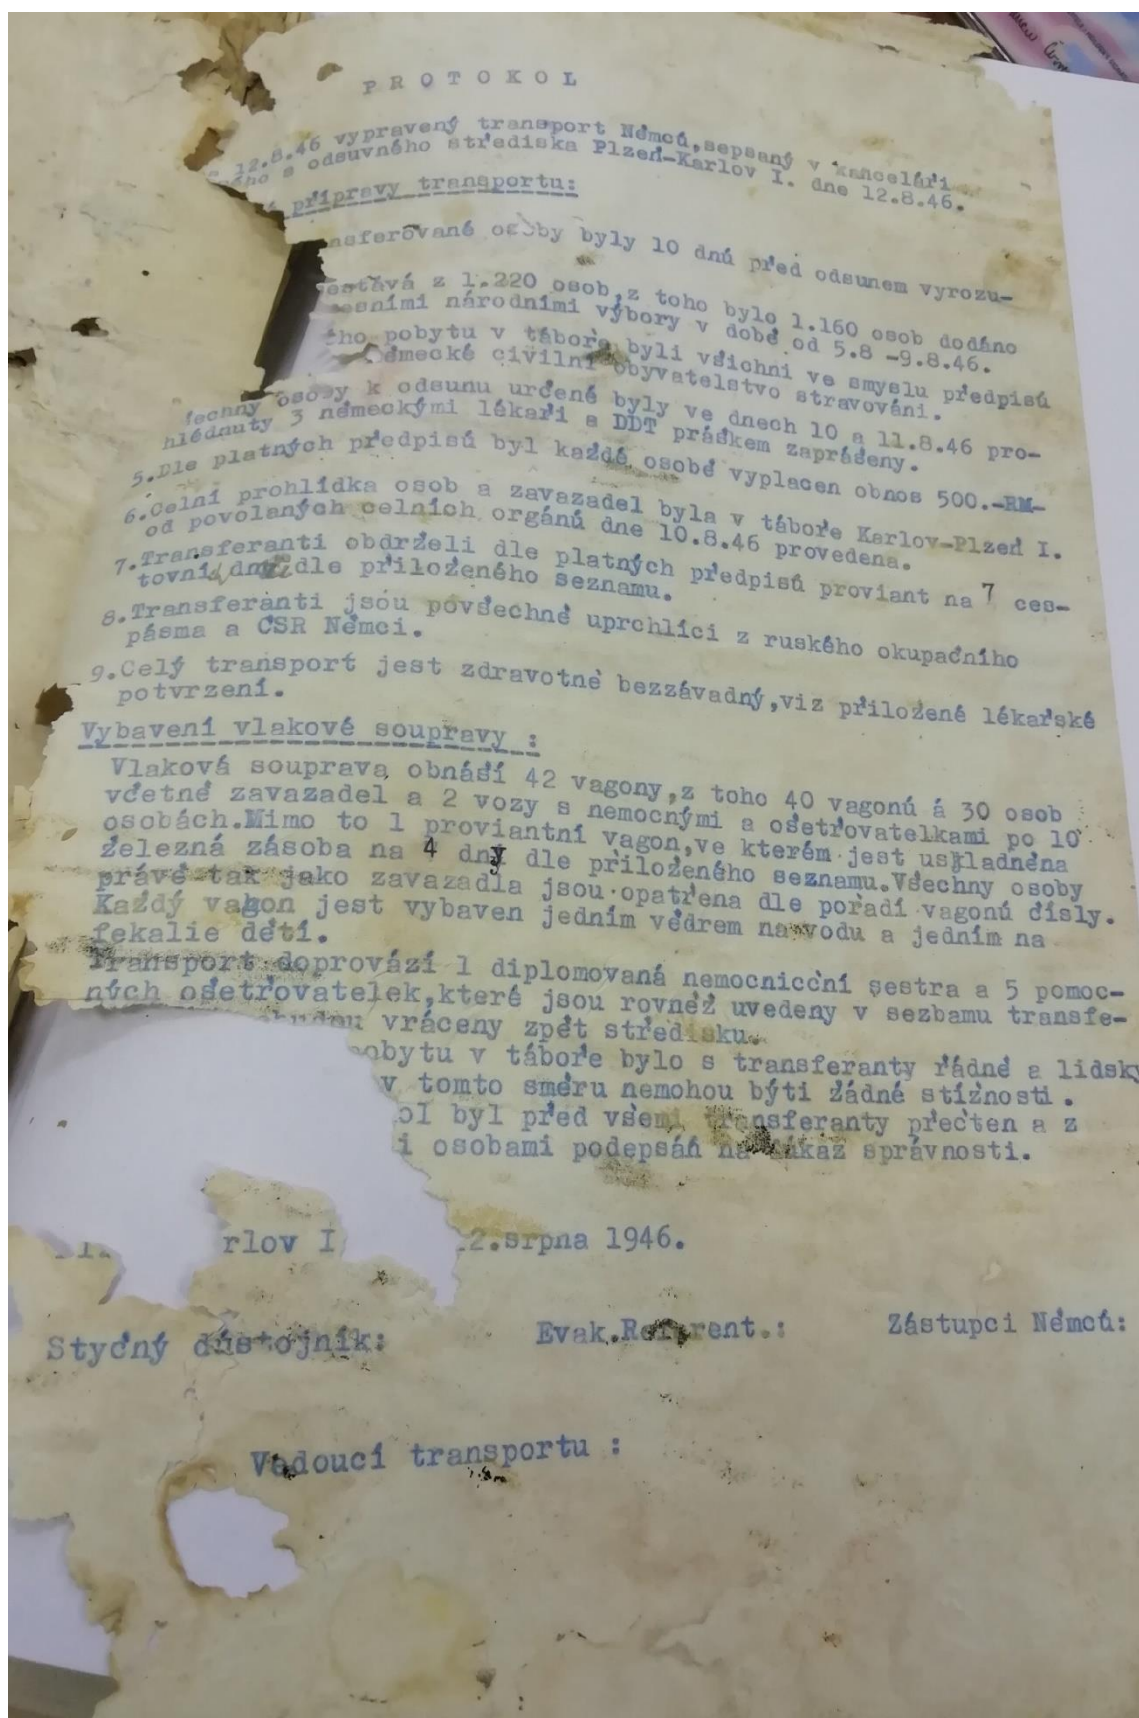 P R O T O K O L
12.8.46 vypravený transport Němců,sepsaný v kanceláři
ného a odsuvného střediska Plzeň-Karlov I. dne 12.8.46.
přípravy transportu:
nsferované osoby byly 10 dnů před odsunem vyrozu-
estává z 1.220 osob,z toho bylo 1.160 osob dodáno
esními národními výbory v době od 5.8 -9.8.46.
ho pobytu v táboře byli všichni ve smyslu předpisů
německé civilní obyvatelstvo stravováni.
šechny osoby k odsunu určené byly ve dnech 10 a 11.8.46 pro-
hlédnuty 3 německými lékaři a DDT práškem zaprášeny.
5.Dle platných předpisů byl každé osobě vyplacen obnos 500.-RM-
6.Celní prohlídka osob a zavazadel byla v táboře Karlov-Plzeň I.
od povolaných celních orgánů dne 10.8.46 provedena.
7.Transferanti obdrželi dle platných předpisů proviant na 7 ces-
tovní dny dle přiloženého seznamu.
8.Transferanti jsou povšechně uprchlíci z ruského okupačního
pásma a ČSR Němci.
9.Celý transport jest zdravotně bezzávadný,viz přiložené lékařské
potvrzení.
Vybavení vlakové soupravy :
Vlaková souprava obnáší 42 vagony,z toho 40 vagonů á 30 osob
včetně zavazadel a 2 vozy s nemocnými a ošetřovatelkami po 10
osobách.Mimo to 1 proviantní vagon,ve kterém jest uskladněna
železná zásoba na 4 dny dle přiloženého seznamu.Všechny osoby
právě tak jako zavazadla jsou opatřena dle pořadí vagonů čísly.
Každý vagon jest vybaven jedním vědrem na vodu a jedním na
fekalie dětí.
Transport doprovází 1 diplomovaná nemocniční sestra a 5 pomoc-
ných ošetřovatelek,které jsou rovněž uvedeny v sezbamu transfe-
budou vráceny zpět středisku.
pobytu v táboře bylo s transferanty řádně a lidsky
v tomto směru nemohou býti žádné stížnosti .
ol byl před všemi transferanty přečten a z
i osobami podepsán na důkaz správnosti.
rlov I 2.srpna 1946.
Styčný důstojník: Evak.Referent.: Zástupci Němců:
Vedoucí transportu :